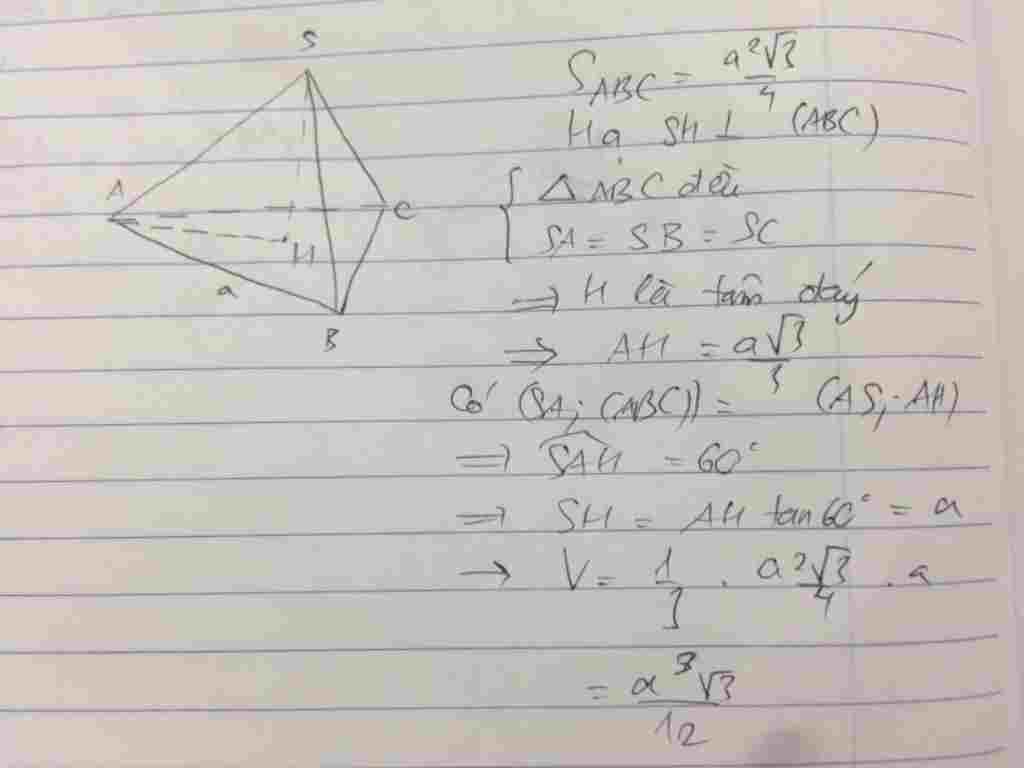 S
A
C
H
a
B
S_ABC = a²√3/4
Hạ SH ⊥ (ABC)
{ △ABC đều
SA = SB = SC
=> H là tâm đáy
=> AH = a√3/3
Có (SA; (ABC)) = (AS; AH)
=> SAH = 60°
=> SH = AH tan60° = a
→ V = 1/3 . a²√3/4 . a
= a³√3/12